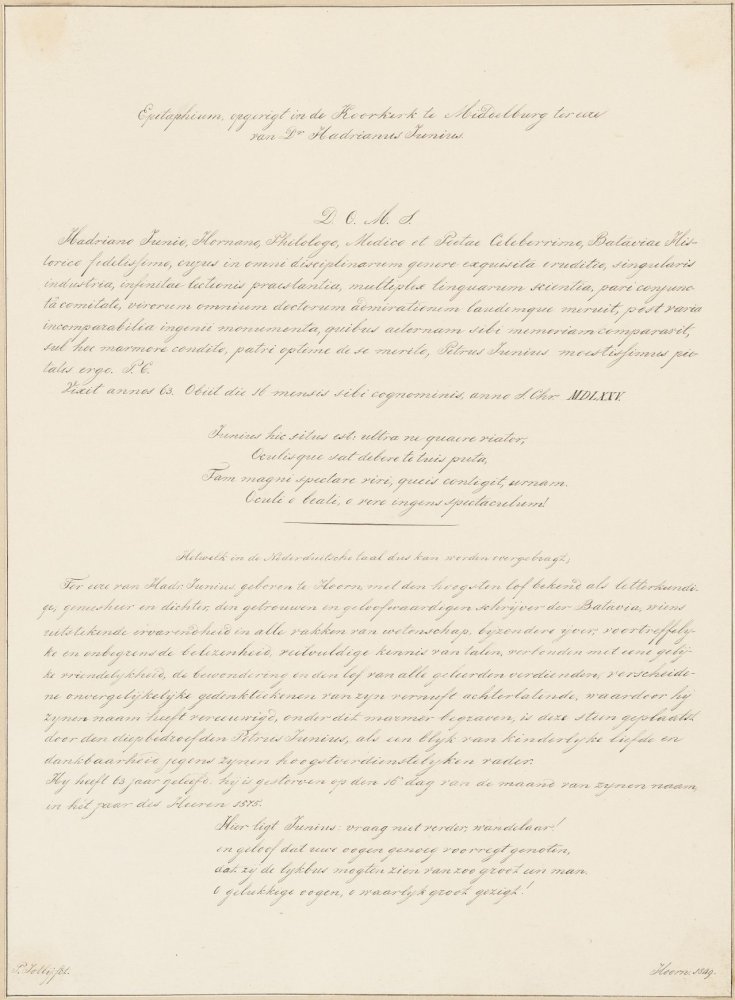 Epitaphium, opgerigt in de Koorkerk te Middelburg ter eere
van Dr. Hadrianus Junius.
D. O. M. S.
Hadriano Junio, Hornano, Philologo, Medico et Poetae Celeberrimo, Bataviae His-
torico fidelissimo, cujus in omni disciplinarum genere exquisita eruditio, singularis
industria, infinitae lectionis praestantia, multiplex linguarum scientia, pari conjunc-
tâ comitate, virorum omnium doctorum admirationem laudemque meruit, post varia
incomparabilia ingenii monumenta, quibus aeternam sibi memoriam comparavit,
sub hoc marmore condito, patri optime de se merito, Petrus Junius moestissimus pie-
tatis ergo. P. C.
Vixit annos 63. Obiit die 16 mensis sibi cognominis, anno J. Chr. MDLXXV.
Junius hic situs est: ultra ne quaere viator,
Oculisque sat debere te tuis puta,
Tam magni spectare viri, queis contigit, urnam.
Oculi o beati, o vere ingens spectaculum!
Hetwelk in de Nederduitsche taal dus kan worden overgebragt;
Ter eere van Hadr. Junius, geboren te Hoorn, met den hoogsten lof bekend als letterkundi-
ge, geneesheer en dichter, den getrouwen en geloofwaardigen schrijver der Batavia, wiens
uitstekende ervarendheid in alle vakken van wetenschap, byzondere yver, voortreffely-
ke en onbegrensde belezenheid, veelvuldige kennis van talen, verbonden met eene gely-
ke vriendelykheid, de bewondering en den lof van alle geleerden verdienden, verscheide-
ne onvergelykelyke gedenkteekenen van zyn vernuft achterlatende, waardoor hy
zynen naam heeft vereeuwigd, onder dit marmer begraven, is deze steen geplaatst
door den diepbedroefden Petrus Junius, als een blyk van kinderlyke liefde en
dankbaarheid jegens zynen hoogstverdienstelyken vader.
Hy heeft 63 jaar geleefd, hy is gestorven op den 16e dag van de maand van zynen naam,
in het jaar des Heeren 1575.
Hier ligt Junius: vraag niet verder, wandelaar!
en geloof dat uwe oogen genoeg voorregt genoten,
dat zy de lykbus mogten zien van zoo groot een man.
O gelukkige oogen, o waarlyk groot gezigt!
Hoorn. 1849.